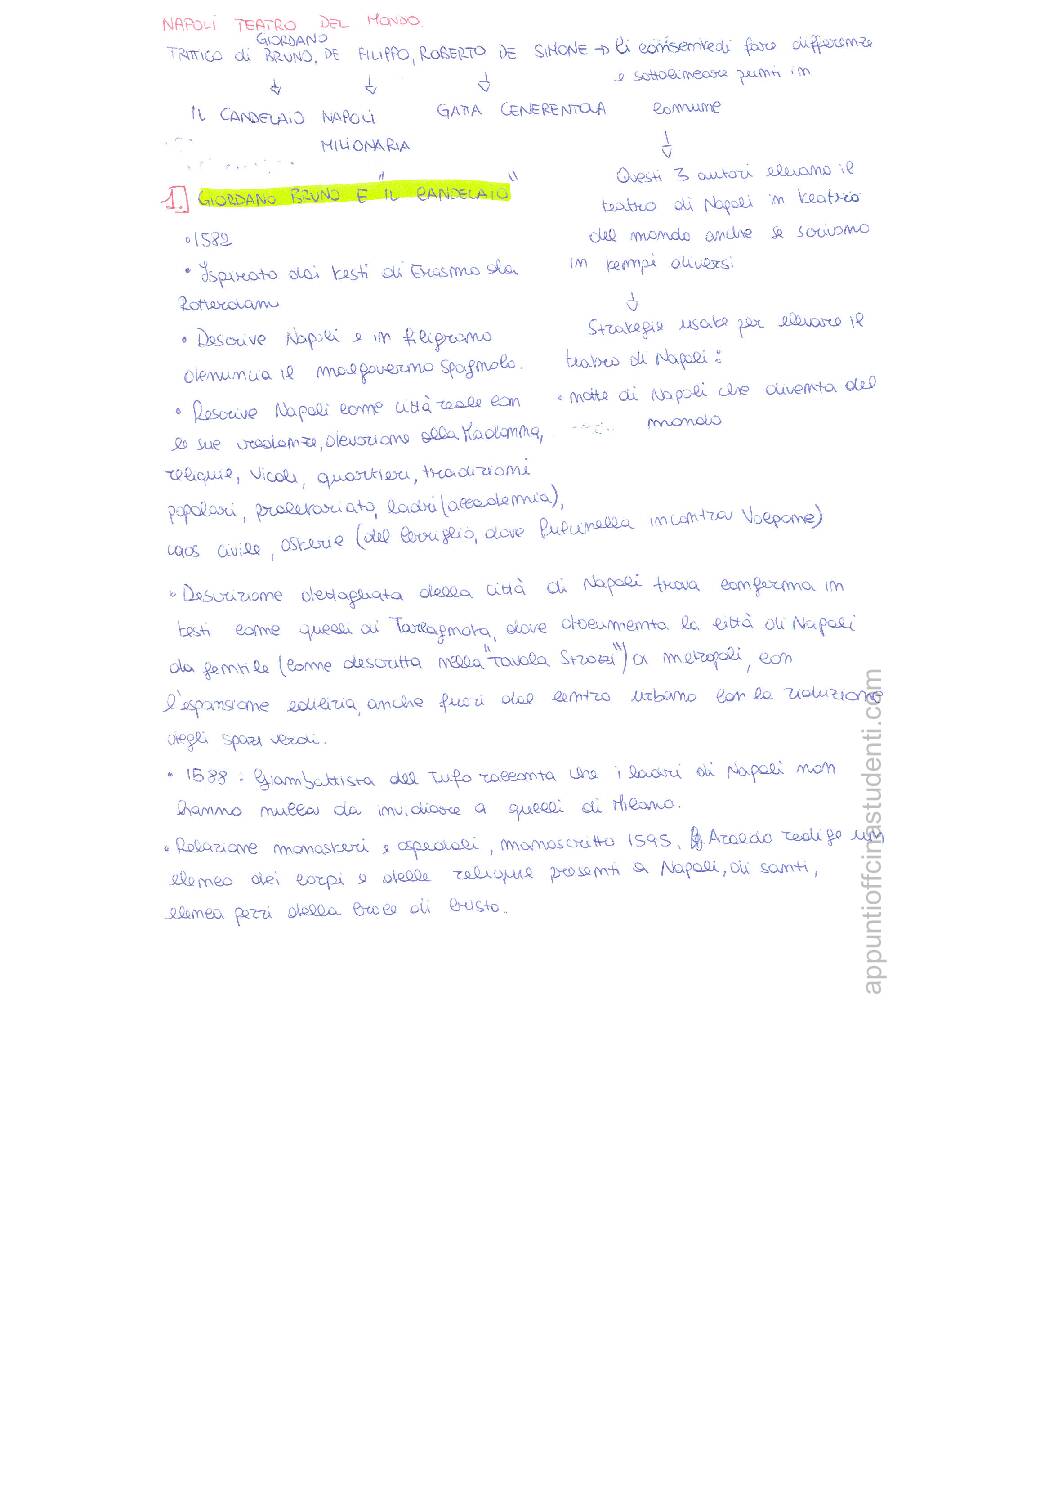 NAPOLI TEATRO DEL MONDO.
TRITTICO di GIORDANO BRUNO, DE FILIPPO, ROBERTO DE SIMONE → Ci consente di fare differenze
e sottolineare punti in
comune
IL CANDELAIO NAPOLI MILIONARIA GATTA CENERENTOLA
Questi 3 autori elevano il
teatro di Napoli in teatro
del mondo anche se scrivono
in tempi diversi
Strategie usate per elevare il
teatro di Napoli:
• notte di Napoli che diventa del
mondo
1. GIORDANO BRUNO E "IL CANDELAIO"
• 1582
• Ispirato dai testi di Erasmo da
Rotterdam
• Descrive Napoli e in filigrana
denuncia il malgoverno spagnolo.
• Descrive Napoli come città reale con
le sue credenze, devozione alla Madonna,
reliquie, vicoli, quartieri, tradizioni
popolari, proletariato, ladri (accademia),
caos civile, osterie (del Cerriglio, dove Pulcinella incontra Volpone)
• Descrizione dettagliata della città di Napoli trova conferma in
testi come quelli di Tarcagnota, dove documenta la città di Napoli
da gentile (come descritta nella "Tavola Strozzi") a metropoli, con
l'espansione edilizia, anche fuori dal centro urbano con la riduzione
degli spazi verdi.
• 1588: Giambattista del Tufo racconta che i ladri di Napoli non
hanno nulla da invidiare a quelli di Milano.
• Relazione monasteri e ospedali, manoscritto 1595, Araldo redige un
elenco dei corpi e delle reliquie presenti a Napoli, di santi,
elenca pezzi della Croce di Cristo.
appuntioffcinastudenti.com